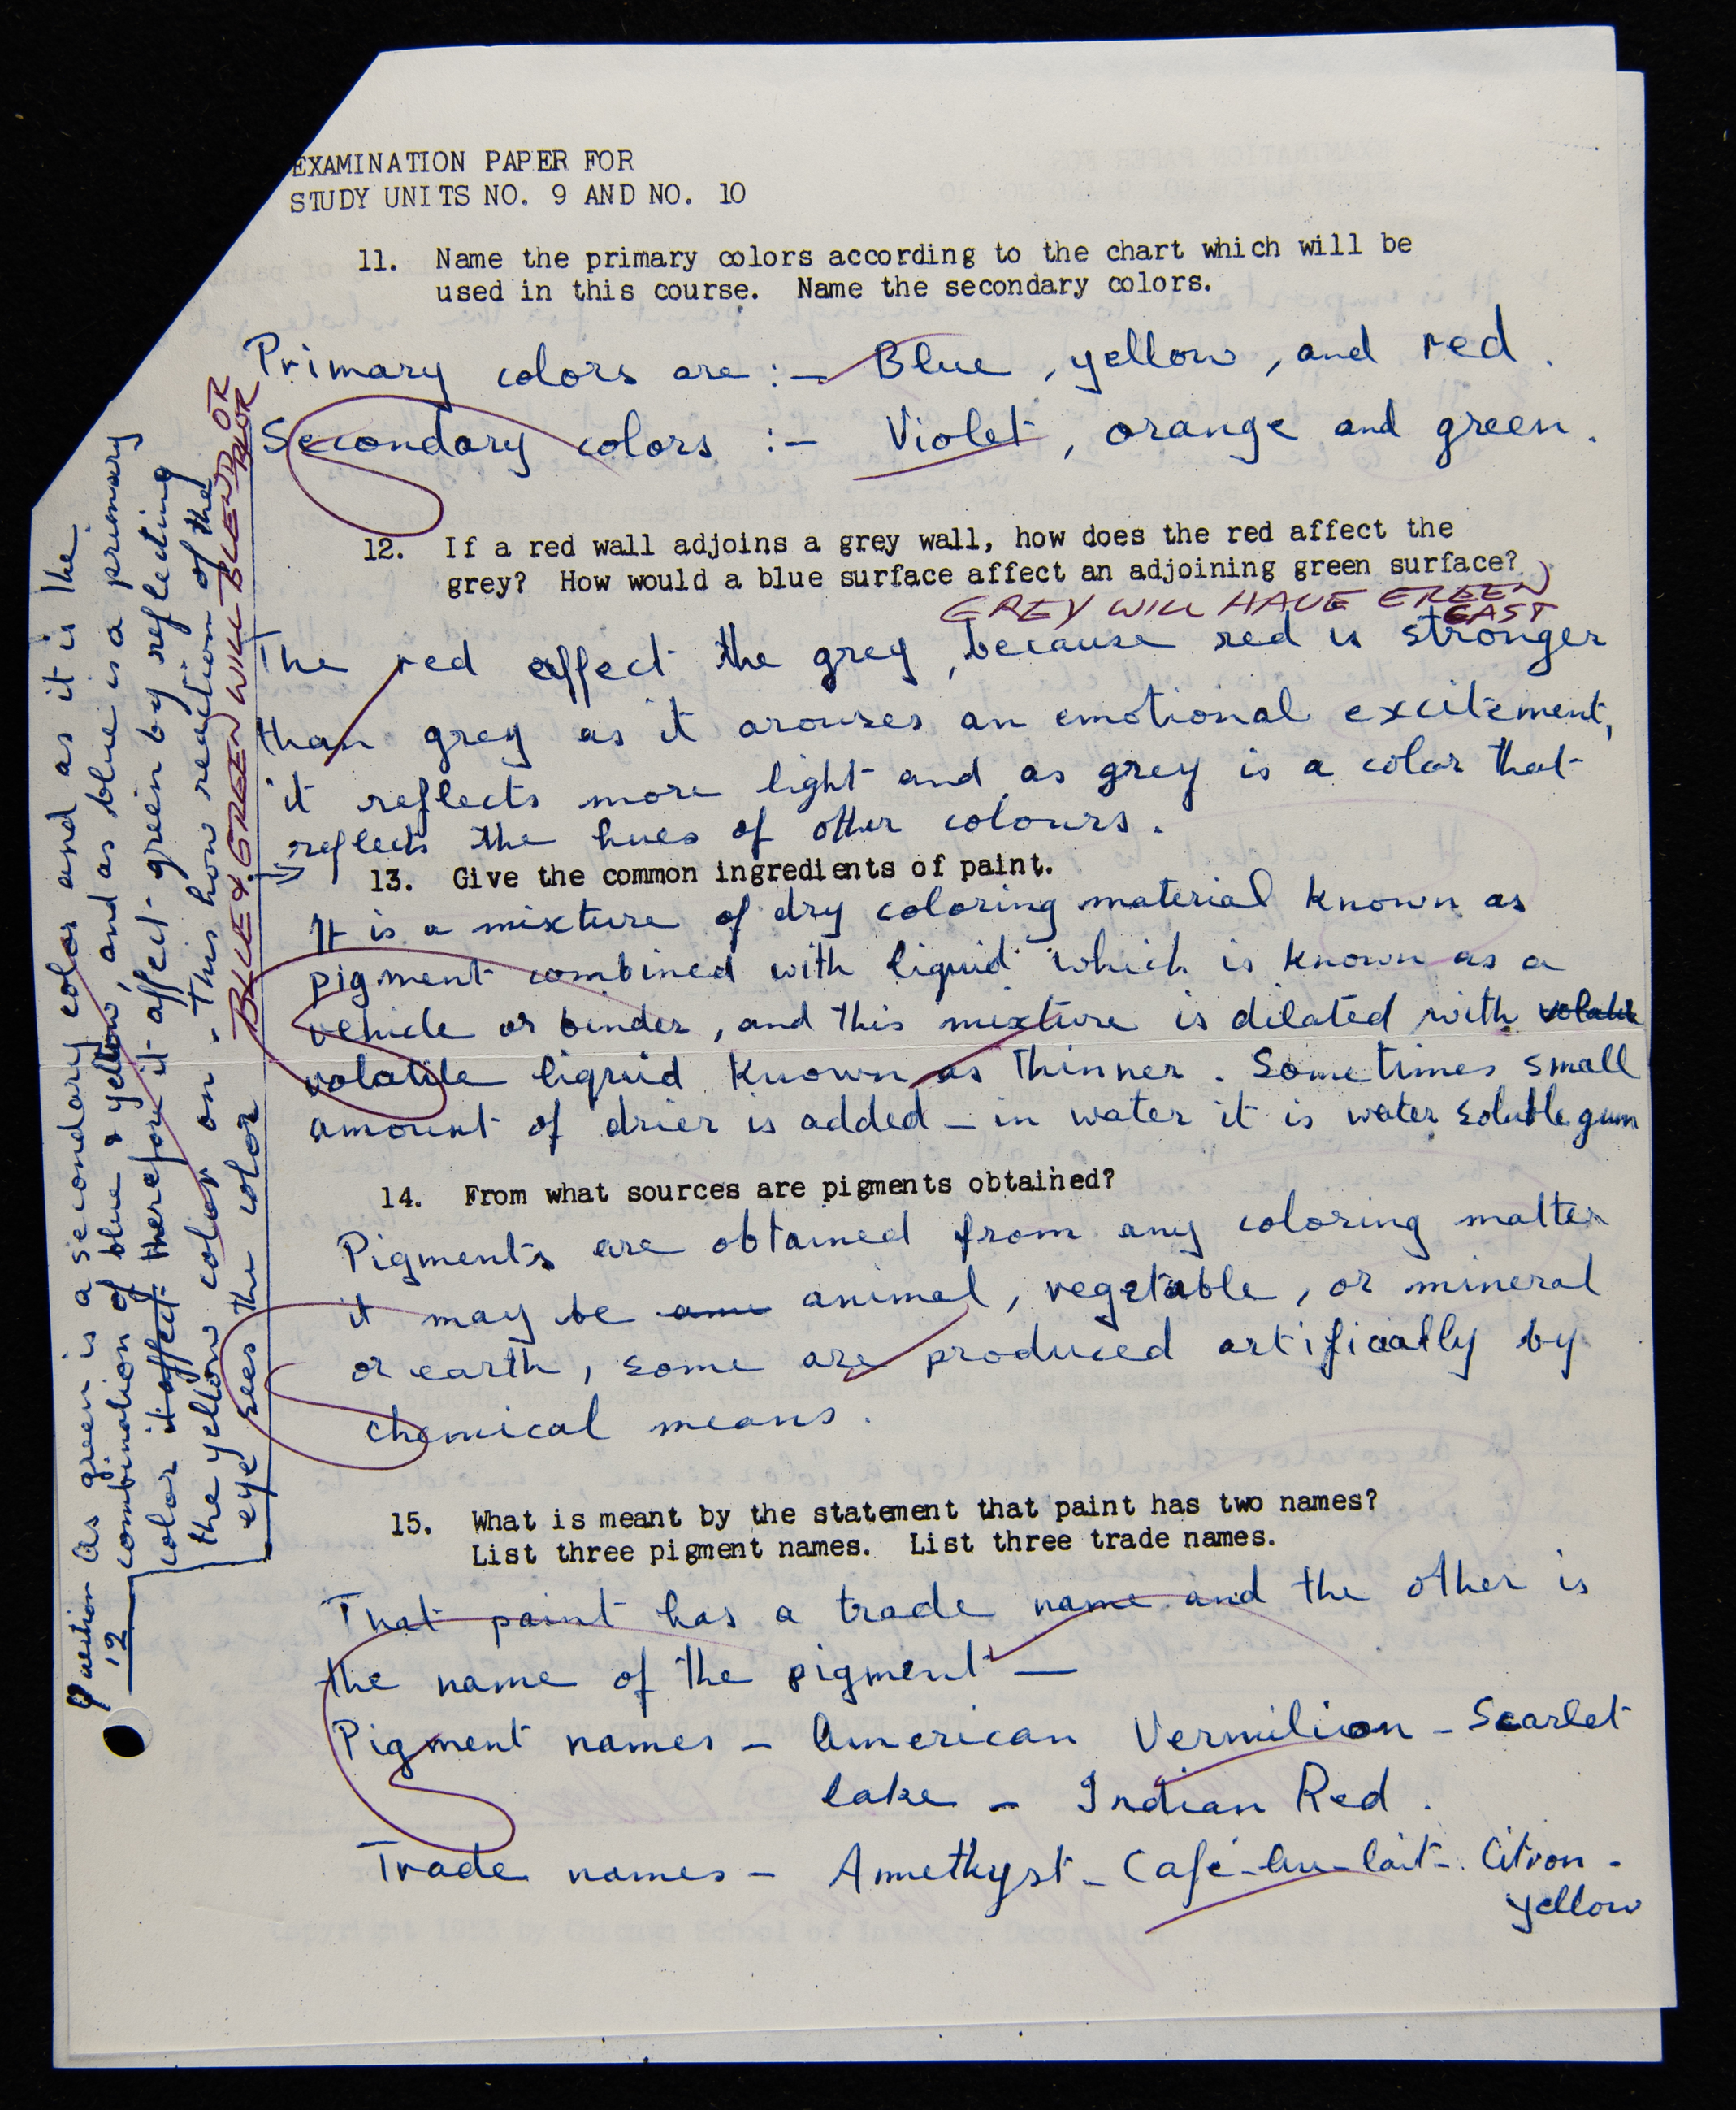 EXAMINATION PAPER FOR
STUDY UNITS NO. 9 AND NO. 10
11. Name the primary colors according to the chart which will be
used in this course. Name the secondary colors.
Primary colors are :- Blue, yellow, and red.
Secondary colors :- Violet, orange and green.
12. If a red wall adjoins a grey wall, how does the red affect the
grey? How would a blue surface affect an adjoining green surface?
GREY WILL HAVE GREEN
CAST
The red affect the grey, because red is stronger
than grey as it arouses an emotional excitement,
it reflects more light and as grey is a color that
reflects the hues of other colours.
13. Give the common ingredients of paint.
It is a mixture of dry coloring material known as
pigment combined with liquid which is known as a
vehicle or binder, and this mixture is dilated with volatile
volatile liquid known as thinner. Sometimes small
amount of drier is added - in water it is water soluble gum
14. From what sources are pigments obtained?
Pigments are obtained from any coloring matter
it may be ami animal, vegetable, or mineral
or earth, some are produced artificially by
chemical means.
15. What is meant by the statement that paint has two names?
List three pigment names. List three trade names.
That paint has a trade name and the other is
the name of the pigment —
Pigment names - American Vermilion - Scarlet
lake - Indian Red.
Trade names - Amethyst - Café-au-lait - Citron -
yellow
Question
12
As green is a secondary color and as it is the
combination of blue & yellow, and as blue is a primary
color it affect therefore it affect green by reflecting
the yellow color on - This how reaction of the
eye sees the color
BLUE & GREEN WILL BLEND OR